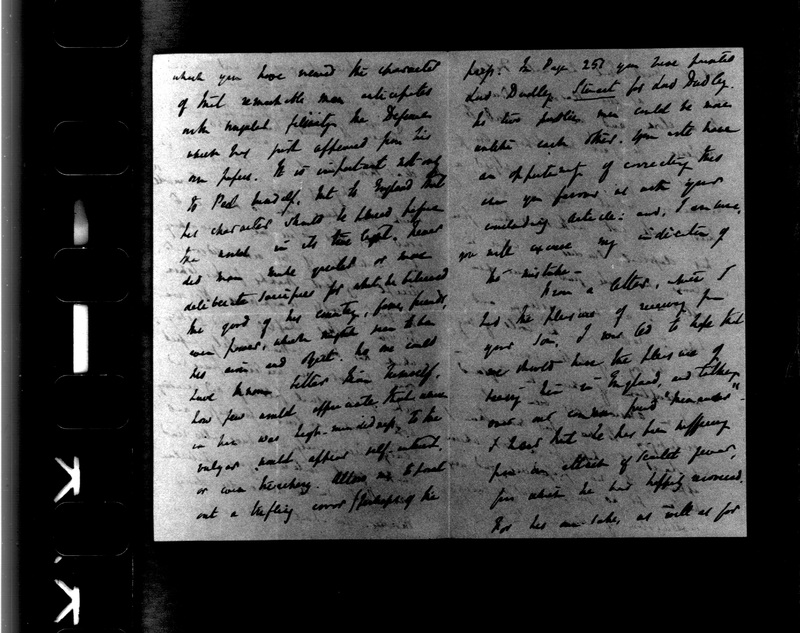 which you have viewed the character
of that remarkable man anticipates
with singular felicity the Defence
which has just appeared from his
own papers. It is important not only
to Peel himself, but to England that
his character should be placed before
the world in its true light. Never
did man make greater or more
deliberate sacrifices for what he believed
the good of his country, fame, friends,
even power, which might seem to be
his aim and object. No one could
have known better than himself,
how few would appreciate that what
in him was high-mindedness, to the
vulgar would appear self-interest,
or even treachery. Allow me to point
out a trifling error (perhaps of the
press. In Page 251 you have printed
Lord Dudley Stuart for Lord Dudley.
No two public men could be more
unlike each other. You will have
an opportunity of correcting this
when you favour us with your
concluding article: and, I am sure,
you will excuse my indication of
the mistake—
From a letter, which I
had the pleasure of receiving from
your Son, I was led to hope that
we should have the pleasure of
seeing him in England, and talking
over our common friend
I hear that he has been suffering
from an attack of scarlet fever,
from which he had happily recovered.
For his own sake, as well as for